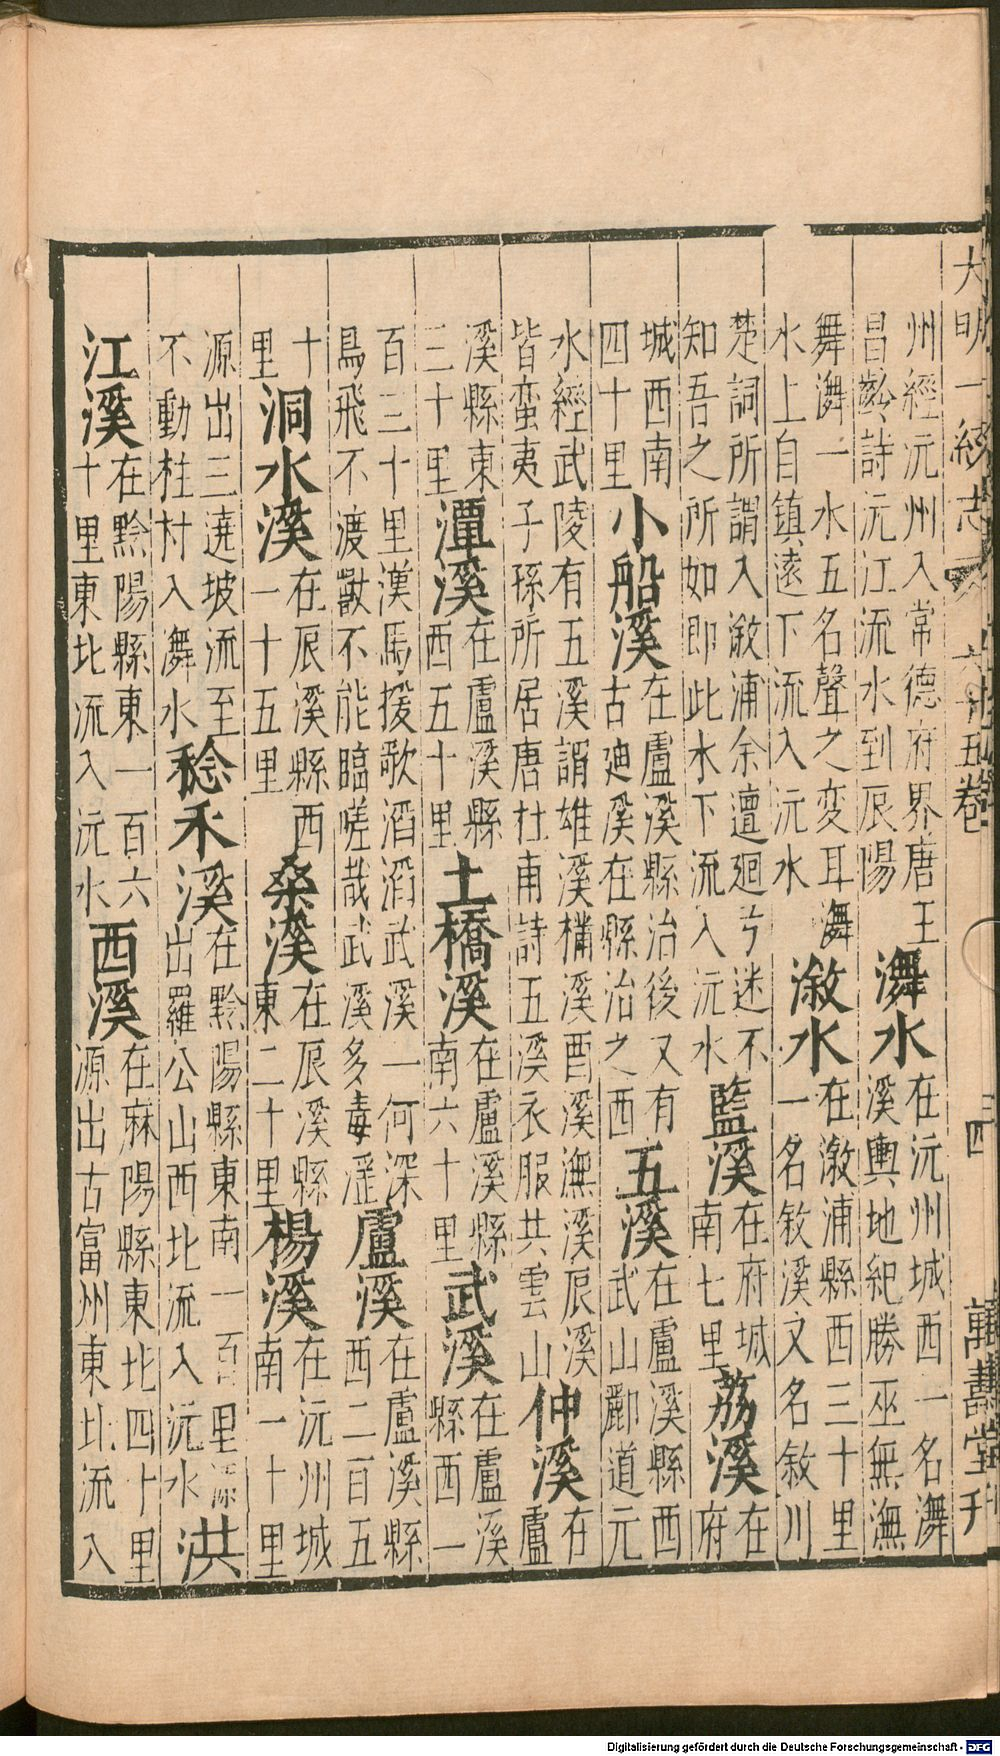 大明一統志 六十五卷 三四 萬壽堂刊
州經沅州入常德府界唐王昌齡詩沅江流水到辰陽㵲水在沅州城西一名㵲溪輿地紀勝巫無潕
舞㵲一水五名聲之変耳㵲水上自鎮遠下流入沅水漵水在漵浦縣西三十里一名敘溪又名敘川
楚詞所謂入漵浦余邅迴兮迷不知吾之所如即此水下流入沅水藍溪在府城南七里荔溪在府
城西南四十里小船溪在盧溪縣治後又有古廸溪在縣治之西五溪在盧溪縣西武山酈道元
水經武陵有五溪謂雄溪樠溪酉溪潕溪辰溪皆蛮夷子孫所居唐杜甫詩五溪衣服共雲山仲溪在盧
溪縣東三十里潭溪在盧溪縣西五十里土橋溪在盧溪縣南六十里武溪在盧溪縣西一
百三十里漢馬援歌滔滔武溪一何深鳥飛不渡獸不能臨嗟哉武溪多毒淫盧溪在盧溪縣西二百五
十里洞水溪在辰溪縣西一十五里桑溪在辰溪縣東二十里楊溪在沅州城南一十里
源出三遶坡流至不動柱村入㵲水稔禾溪在黔陽縣東南一百里源出羅公山西北流入沅水洪
江溪在黔陽縣東一百六十里東北流入沅水西溪在麻陽縣東北四十里源出古富州東北流入
Digitalisierung gefördert durch die Deutsche Forschungsgemeinschaft - DFG